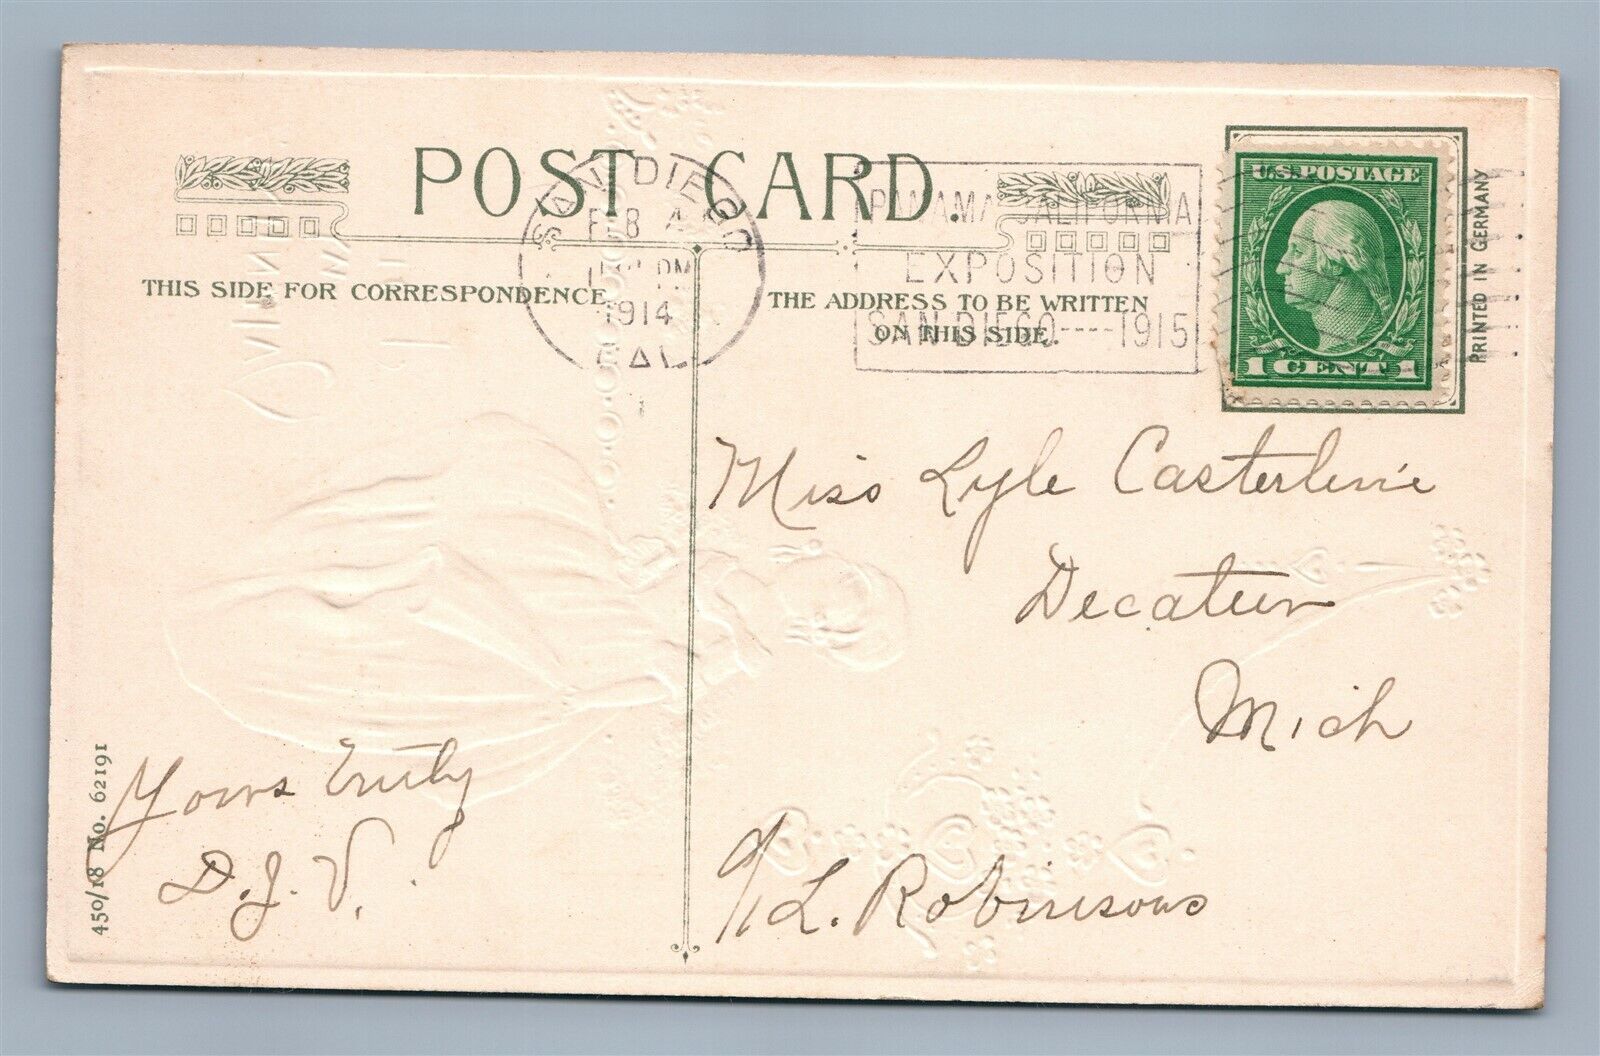 POST CARD.
SAN DIEGO
FEB 4
PM
1914
CAL
PANAMA CALIFORNIA
EXPOSITION
SAN DIEGO----1915
U.S. POSTAGE
1 CENT 1
PRINTED IN GERMANY
THIS SIDE FOR CORRESPONDENCE
THE ADDRESS TO BE WRITTEN
ON THIS SIDE.
Miss Lyle Casterline
Decatur
Mich
c/o L. Robinsons
Yours Truly
D.J.V.
450/18 No. 62191